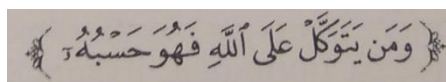 ﴿ وَمَن يَتَوَكَّلْ عَلَى ٱللَّهِ فَهُوَ حَسْبُهُۥٓ ﴾